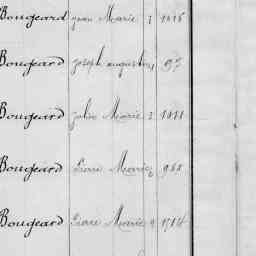 Bougeard Jean Marie 1 1016
Bougeard Joseph augustin 1
Bougeard Julien Marie 3 1011
Bougeard Pierre Marie 988
Bougeard Pierre Marie 1714